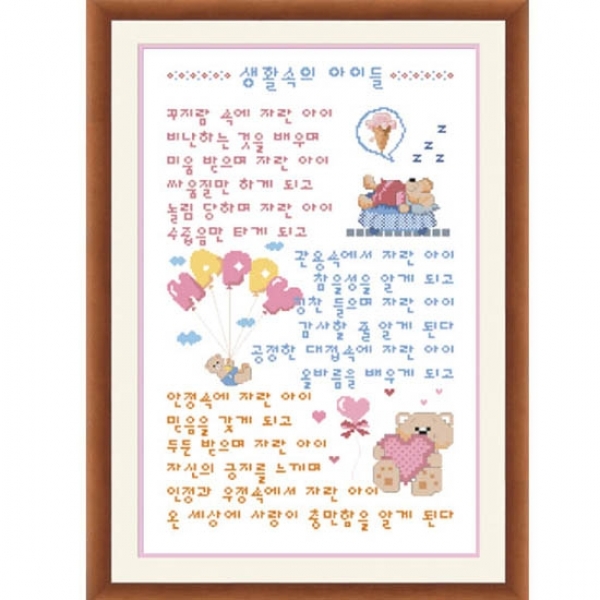 생활속의 아이들
꾸지람 속에 자란 아이
비난하는 것을 배우며
미움 받으며 자란 아이
싸움질만 하게 되고
놀림 당하며 자란 아이
수줍음만 타게 되고
z z z z
관용속에서 자란 아이
참을성을 알게 되고
칭찬 들으며 자란 아이
감사할 줄 알게 된다
공정한 대접속에 자란 아이
올바름을 배우게 되고
HAPPY
안정속에 자란 아이
믿음을 갖게 되고
두둔 받으며 자란 아이
자신의 긍지를 느끼며
인정과 우정속에서 자란 아이
온 세상에 사랑이 충만함을 알게 된다